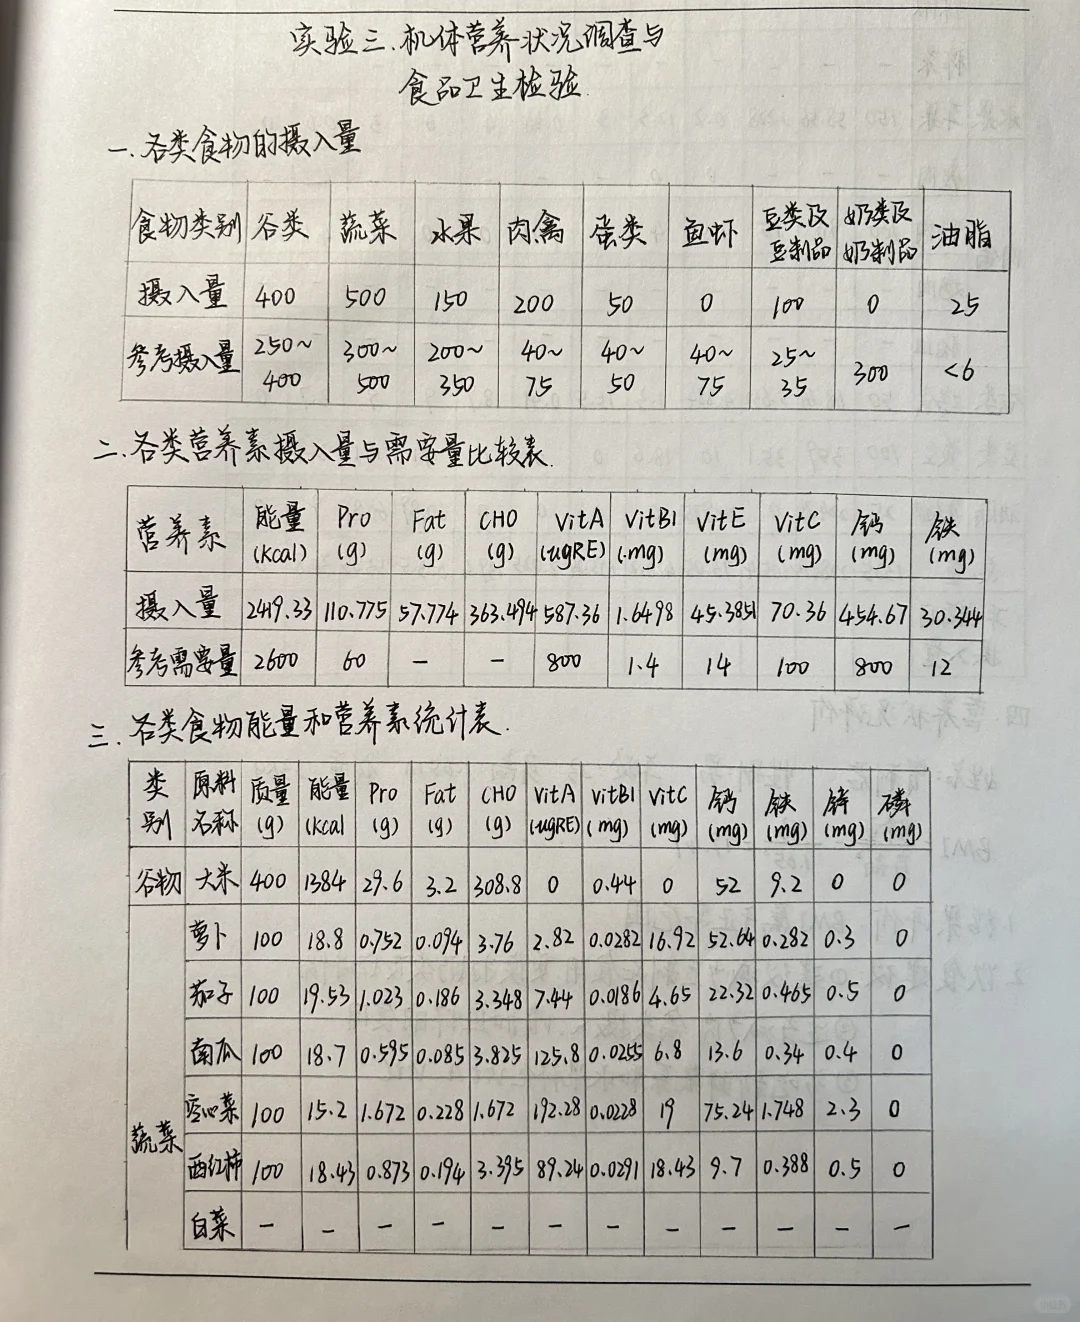 实验三.机体营养状况调查与
食品卫生检验.
一.各类食物的摄入量
食物类别 谷类 蔬菜 水果 肉禽 蛋类 鱼虾 豆类及豆制品 奶类及奶制品 油脂
摄入量 400 500 150 200 50 0 100 0 25
参考摄入量 250~400 300~500 200~350 40~75 40~50 40~75 25~35 300 <6
二.各类营养素摄入量与需要量比较表.
营养素 能量(Kcal) Pro(g) Fat(g) CHO(g) VitA(ugRE) VitB1(mg) VitE(mg) VitC(mg) 钙(mg) 铁(mg)
摄入量 2419.33 110.775 57.774 363.494 587.36 1.6498 45.3851 70.36 454.67 30.344
参考需要量 2600 60 — — 800 1.4 14 100 800 12
三.各类食物能量和营养素统计表.
类别 原料名称 质量(g) 能量(Kcal Pro(g) Fat(g) CHO(g) VitA(ugRE) VitB1(mg) VitC(mg) 钙(mg) 铁(mg) 锌(mg) 磷(mg)
谷物 大米 400 1384 29.6 3.2 308.8 0 0.44 0 52 9.2 0 0
蔬菜
萝卜 100 18.8 0.752 0.094 3.76 2.82 0.0282 16.92 52.64 0.282 0.3 0
茄子 100 19.53 1.023 0.186 3.348 7.44 0.0186 4.65 22.32 0.465 0.5 0
南瓜 100 18.7 0.595 0.085 3.825 125.8 0.0255 6.8 13.6 0.34 0.4 0
空心菜 100 15.2 1.672 0.228 1.672 192.28 0.0228 19 75.24 1.748 2.3 0
西红柿 100 18.43 0.873 0.194 3.395 89.24 0.0291 18.43 9.7 0.388 0.5 0
白菜 — — — — — — — — — — — —